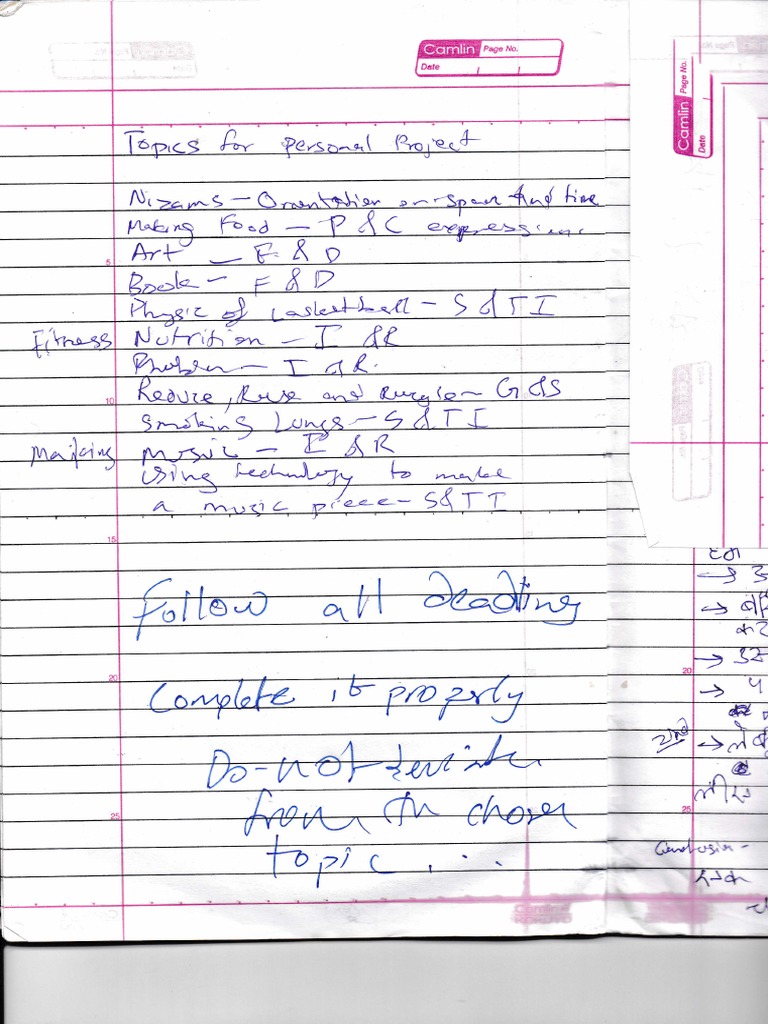 Camlin Page No.
Date
Camlin Page No.
Date
Topics for personal Project
Nizams - Orientation on space and time
Making Food - P & C expression
Art - E & D
Book - F & D
Physic of basketball - S & T I
Fitness Nutrition - I & R
Problem - I & R.
Reduce, Reuse and Recycle - G & S
Smoking Lungs - S & T I
Making Music - I & R
using technology to make
a music piece - S & T I
Follow all deadling
Complete it properly
Do-not deviate
from th chosen
topic ...
5
10
15
20
25
20
25
2nd
Conclusion -